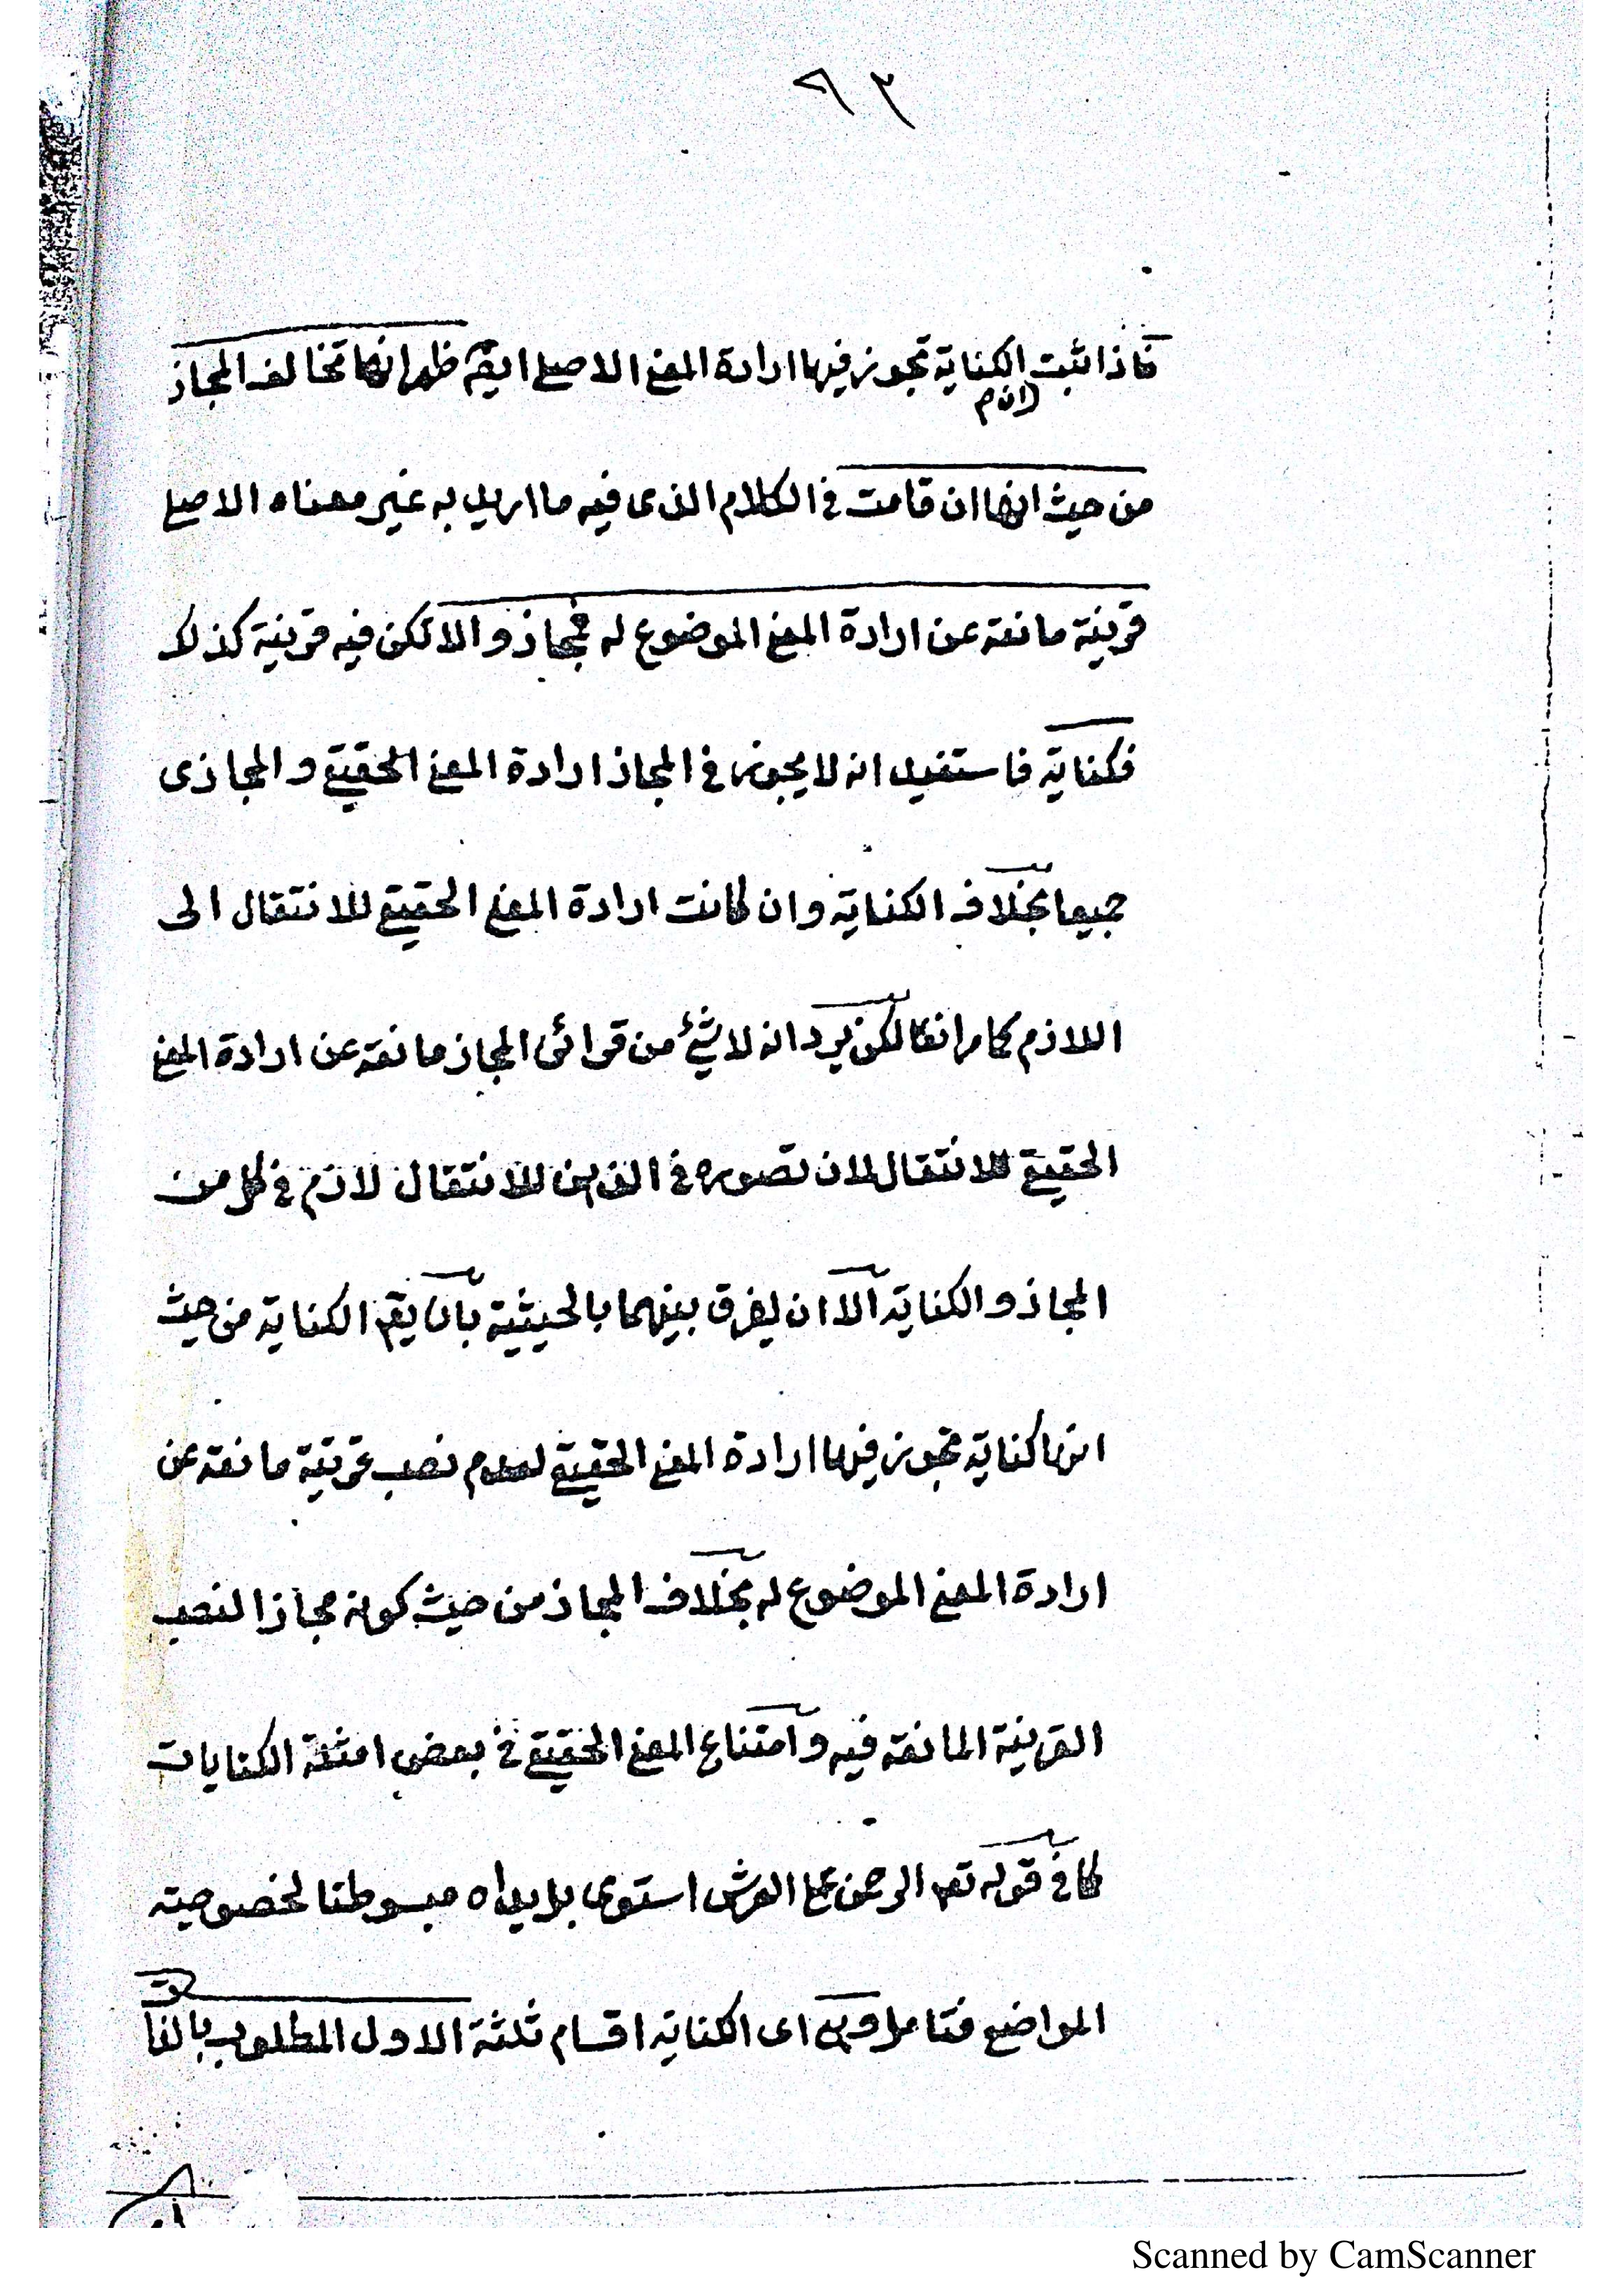 ٩٢
فاذا ثبت الكناية تجوز فيها ارادة المعنى الاصلى ايضا ظهر انها تخالف المجاز
من حيث انها ان قامت فى الكلام الذى فيه ما اريد به غير معناه الاصلى
قرينة مانعة عن ارادة المعنى الموضوع له فمجاز والا لكن فيه قرينة كذلك
فكناية فاستفيد انه لا يجوز فى المجاز ارادة المعنى الحقيقى و المجازى
جميعا بخلاف الكناية وان كانت ارادة المعنى الحقيقى للانتقال الى
اللازم كما مر انفا لكن يرد انه لا شئ من قرائن المجاز مانعة عن ارادة المعنى
الحقيقى للانتقال لان تصوره فى الذهن للانتقال لازم فى كل من
المجاز و الكناية الا ان يفرق بينهما بالحيثية بان يقم الكناية من حيث
انها كناية تجوز فيها ارادة المعنى الحقيقى لعدم نصب قرينة مانعة عن
ارادة المعنى الموضوع له بخلاف المجاز من حيث كونه مجازا لنصب
القرينة المانعة فيه وامتناع المعنى الحقيقى فى بعض امثلة الكنايات
كما فى قوله تعم الرحمن على العرش استوى بل يداه مبسوطتا لخصوصية
المواضع فتامل وهى اى الكناية اقسام ثلثة الاول المطلوب بالنا
Scanned by CamScanner